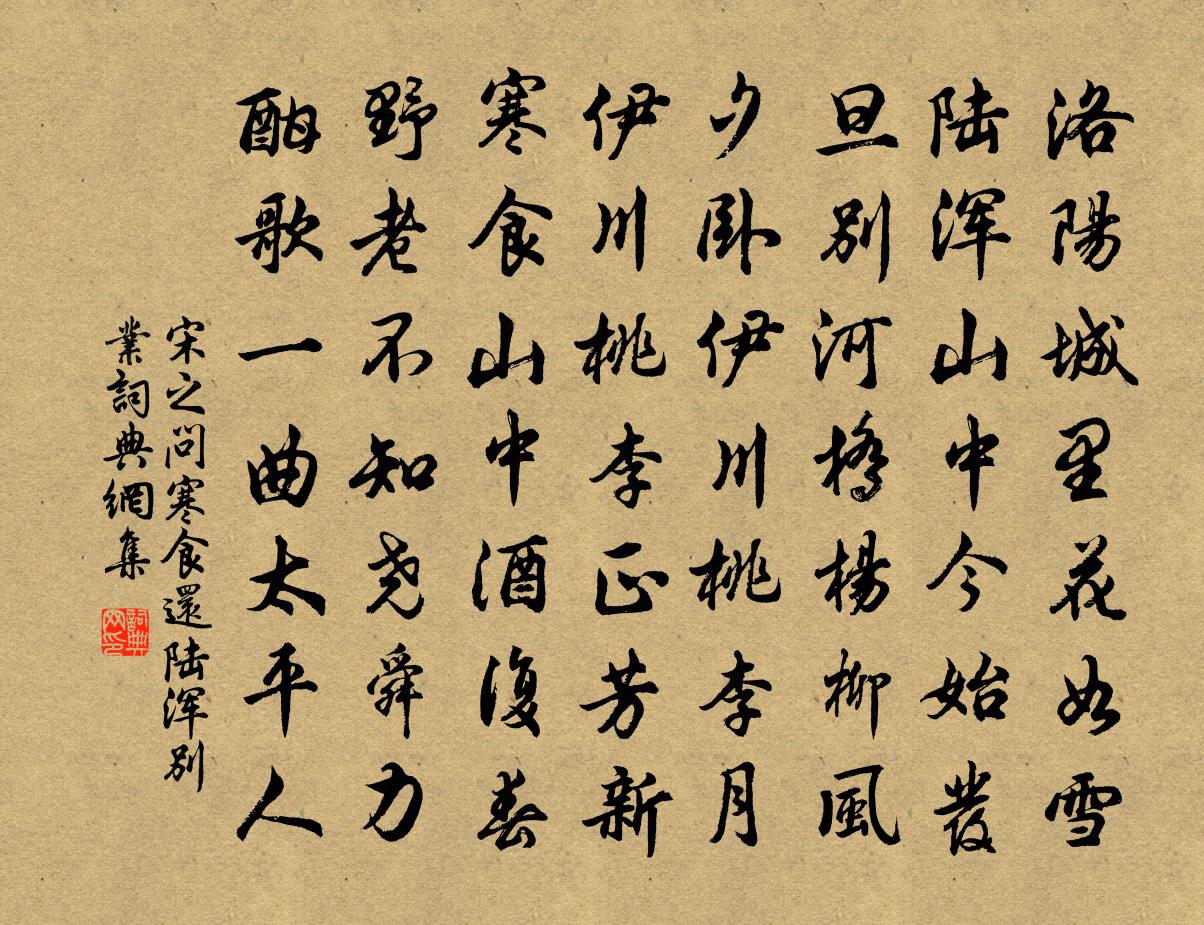 洛陽城里花如雪
陆浑山中今始發
旦别河橋楊柳風
夕卧伊川桃李月
伊川桃李正芳新
寒食山中酒復春
野老不知尧舜力
酣歌一曲太平人
宋之问寒食還陆浑别
業詞典網集
詞典
网印